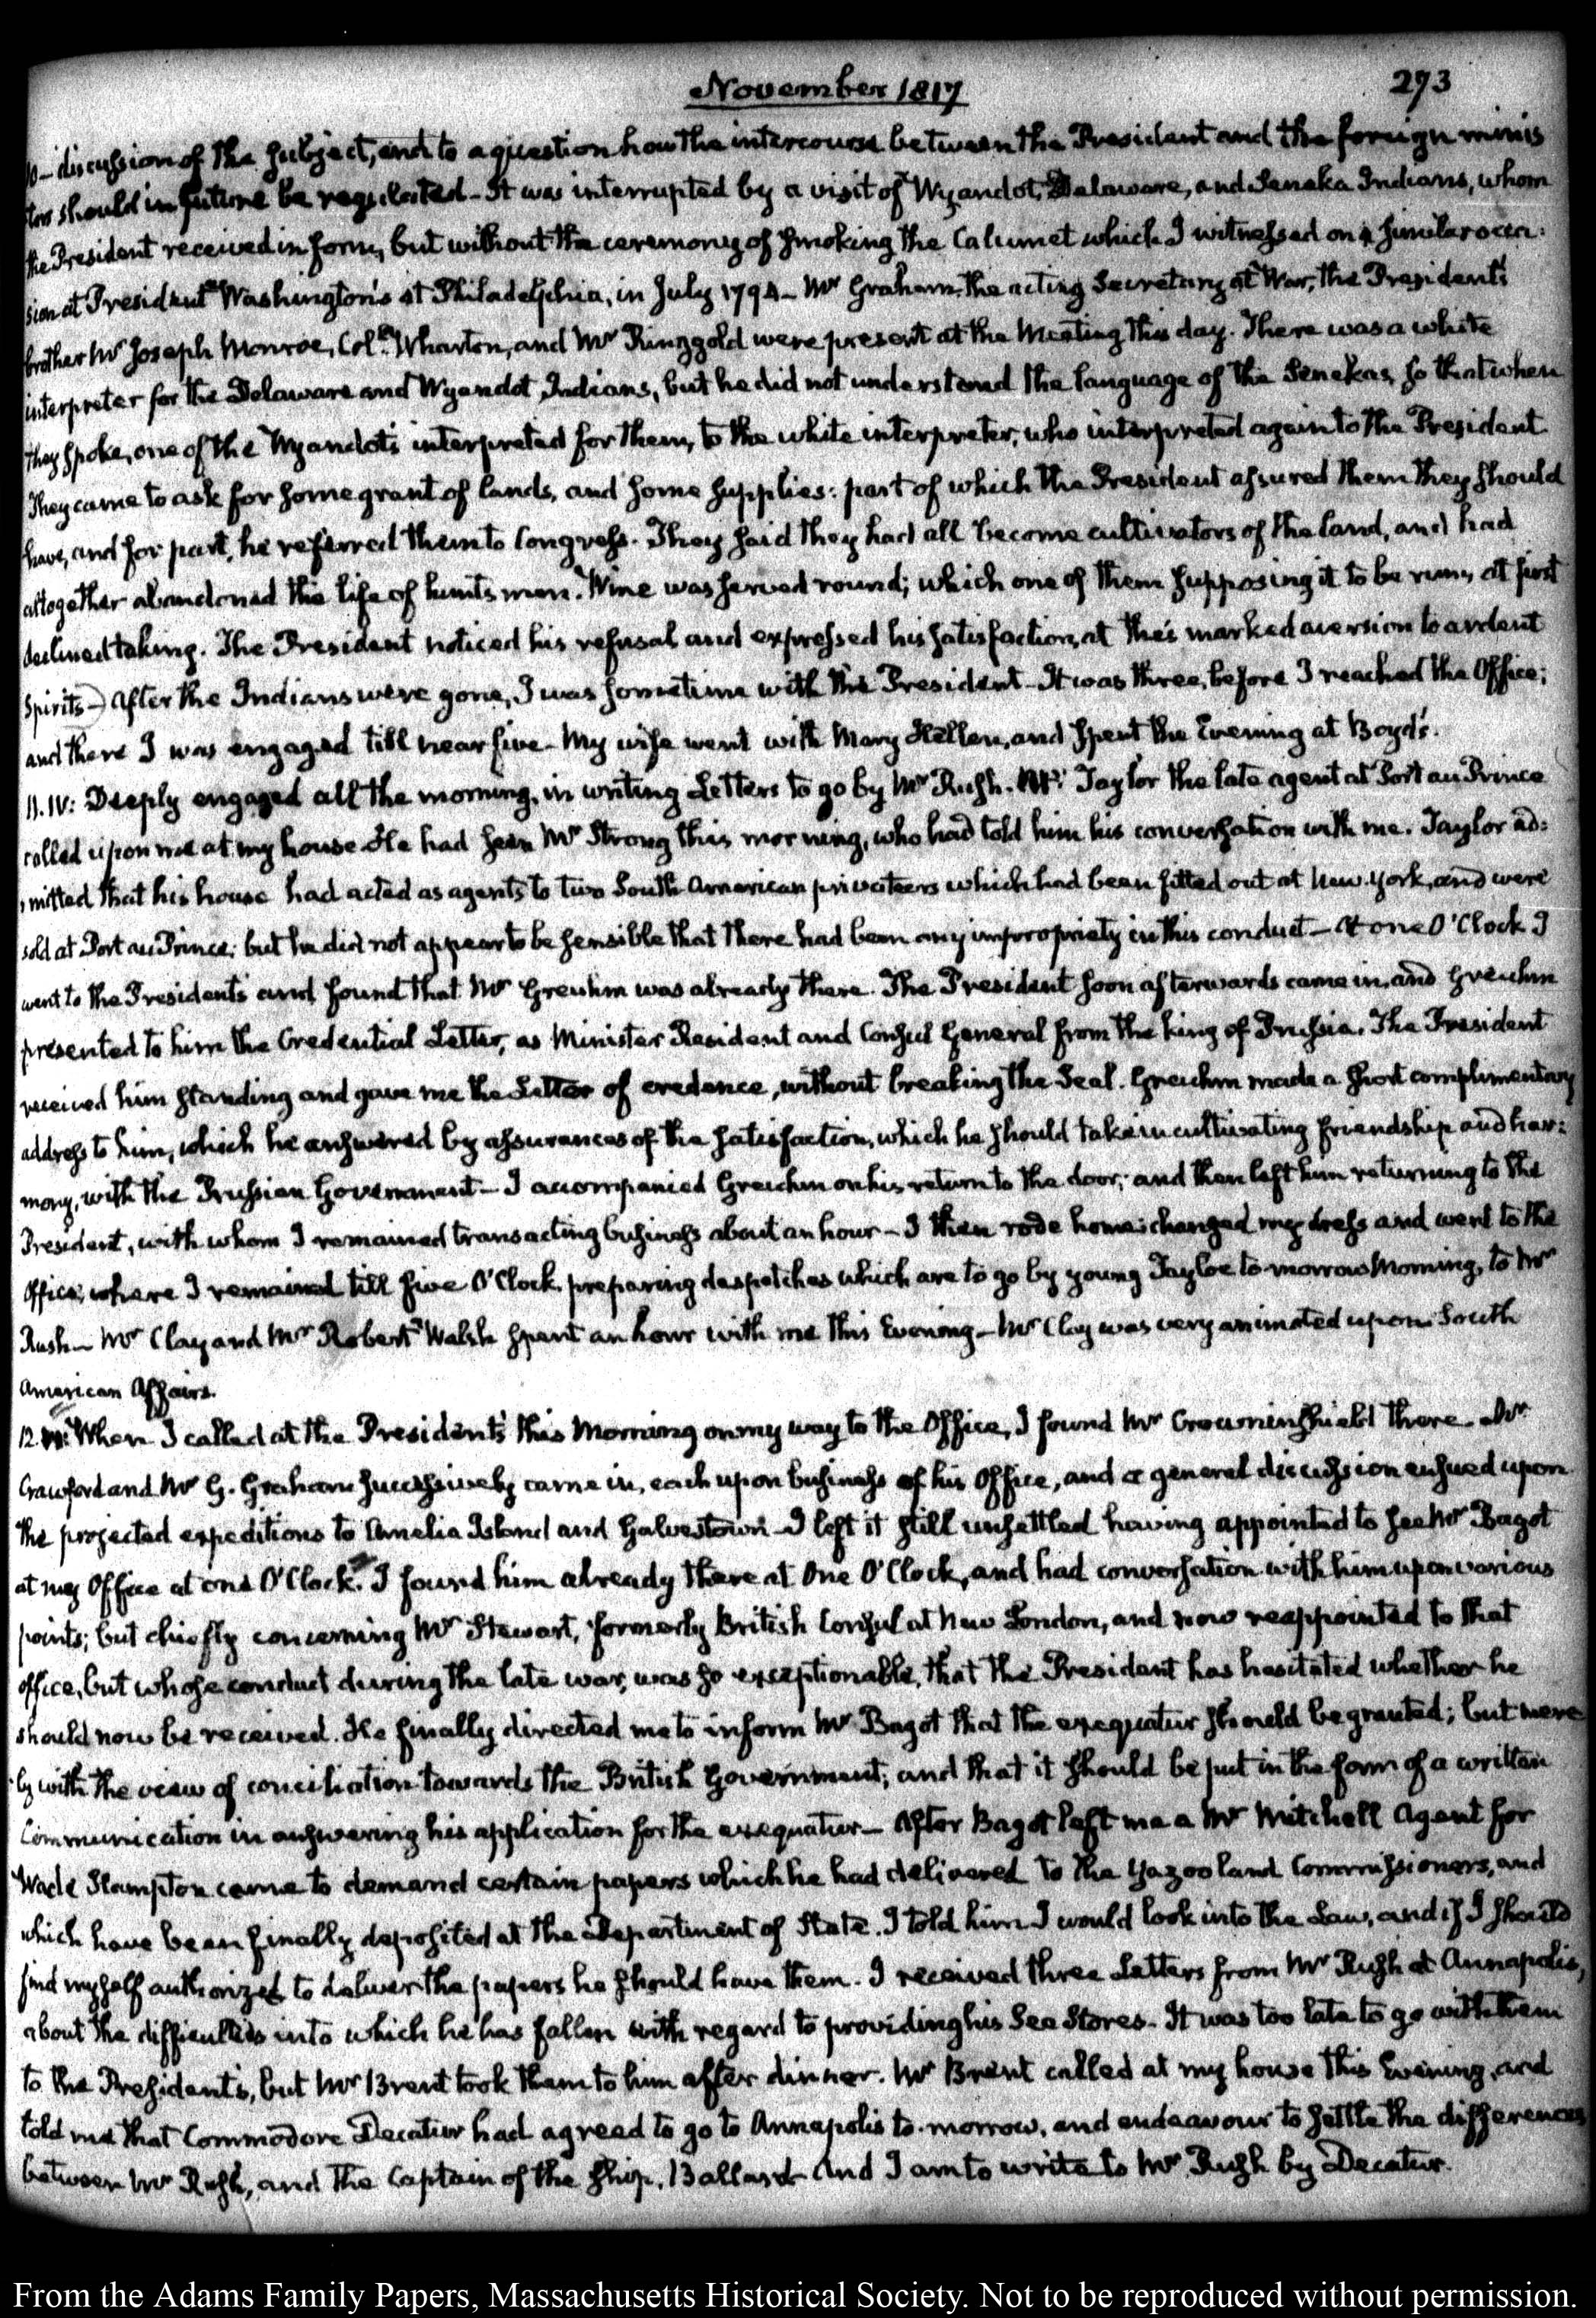 November 1817
273
to a discussion of the subject, and to a question how the intercourse between the President and the foreign minis
ters should in future be regulated - It was interrupted by a visit of Wyandot, Delaware, and Seneka Indians, whom
the President received in form, but without the ceremony of smoking the Calumet which I witnessed on a similar occa:
sion at President Washington's at Philadelphia, in July 1794 - Mr Graham the acting Secretary at War, the President's
brother Mr Joseph Monroe, Coll. Wharton, and Mr Ringgold were present at the Meeting this day. There was a white
interpreter for the Delaware and Wyandot Indians, but he did not understand the language of the Senekas, so that when
they spoke, one of the Wyandots interpreted for them, to the white interpreter, who interpreted again to the President.
They came to ask for some grant of lands, and some supplies: part of which the President assured them they should
have, and for part, he referred them to Congress. They said they had all become cultivators of the land, and had
altogether abandoned the life of huntsmen. Wine was served round; which one of them supposing it to be rum, at first
declined taking. The President noticed his refusal and expressed his satisfaction, at this marked aversion to ardent
Spirits - After the Indians were gone, I was sometime with the President - It was three, before I reached the Office;
and there I was engaged till near five - My wife went with Mary Hellen, and spent the Evening at Boyd's.
11. IV: Deeply engaged all the morning, in writing Letters to go by Mr Rush. Mr Taylor the late agent at Port au Prince
called upon me at my house. He had seen Mr Strong this morning, who had told him his conversation with me. Taylor ad:
mitted that his house had acted as agents to two South American privateers which had been fitted out at New-York, and were
sold at Port au Prince; but he did not appear to be sensible that there had been any impropriety in this conduct - At one O'Clock I
went to the President's and found that Mr Greuhm was already there. The President soon afterwards came in, and Greuhm
presented to him the Credential Letter, as Minister Resident and Consul General from the King of Prussia. The President
received him standing and gave me the Letter of credence, without breaking the Seal. Greuhm made a short complimentary
address to him, which he answered by assurances of the satisfaction, which he should take in cultivating friendship and har:
mony, with the Prussian Government - I accompanied Greuhm on his return to the door; and then left him returning to the
President, with whom I remained transacting business about an hour - I then rode home: changed my dress and went to the
Office; where I remained till five O'Clock. preparing despatches which are to go by young Tayloe to-morrow Morning, to Mr
Rush - Mr Clay and Mr Robert Walsh spent an hour with me this Evening - Mr Clay was very animated upon South
American Affairs.
12. When I called at the President's this Morning on my way to the Office, I found Mr Crowninshield there - Mr
Crawford and Mr G. Graham successively came in, each upon business of his Office, and a general discussion ensued upon
the projected expeditions to Amelia Island and Galvestown - I left it still unsettled having appointed to see Mr Bagot
at my Office at one O'Clock. I found him already there at One O'Clock, and had conversation with him upon various
points; but chiefly concerning Mr Stewart, formerly British Consul at New London, and now reappointed to that
office, but whose conduct during the late war, was so exceptionable, that the President has hesitated whether he
should now be received. He finally directed me to inform Mr Bagot that the exequatur should be granted; but mere
ly with the view of conciliation towards the British Government; and that it should be put in the form of a written
Communication in answering his application for the exequatur - After Bagot left me a Mr Mitchell Agent for
Wade Hampton came to demand certain papers which he had delivered to the Yazoo land Commissioners, and
which have been finally deposited at the Department of State. I told him I would look into the Law, and if I should
find myself authorized to deliver the papers he should have them. I received three Letters from Mr Rush at Annapolis,
about the difficulties into which he has fallen with regard to providing his Sea Stores - It was too late to go with them
to the President's, but Mr Brent took them to him after dinner. Mr Brent called at my house this Evening, and
told me that Commodore Decatur had agreed to go to Annapolis to-morrow, and endeavour to settle the differences
between Mr Rush, and the Captain of the ship, Ballard - And I am to write to Mr Rush by Decatur.
From the Adams Family Papers, Massachusetts Historical Society. Not to be reproduced without permission.